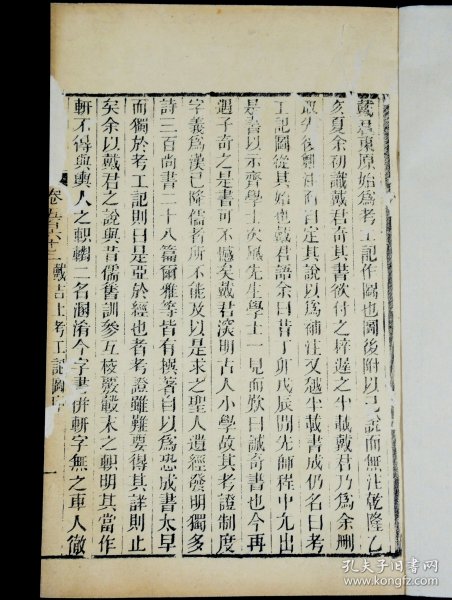 戴君東原始爲考工記作圖也圖後附以己說而無注乾隆乙
亥夏余初識戴君奇其書欲付之梓遲之半載戴君乃爲余刪
取先後鄭注而自定其說以爲補注又越半載書成仍名曰考
工記圖從其始也戴君語余曰昔丁卯戊辰間先師程中允出
是書以示齊學士次風先生學士一見而歎曰誠奇書也今再
遇子奇之是書可不憾矣戴君深明古人小學故其考證制度
字義爲漢已降儒者所不能及以是求之聖人遺經發明獨多
詩三百尚書二十八篇爾雅等皆有撰著自以爲恐成書太早
而獨於考工記則曰是亞於經也者考證雖難要得其詳則止
矣余以戴君之說與昔儒舊訓參互校覈轂末之軹明其當作
軒不得與輿人之軹轛二名溷淆今字書併軒字無之車人徹
卷 十三 戴吉士考工記圖序 一
孔夫子旧书网